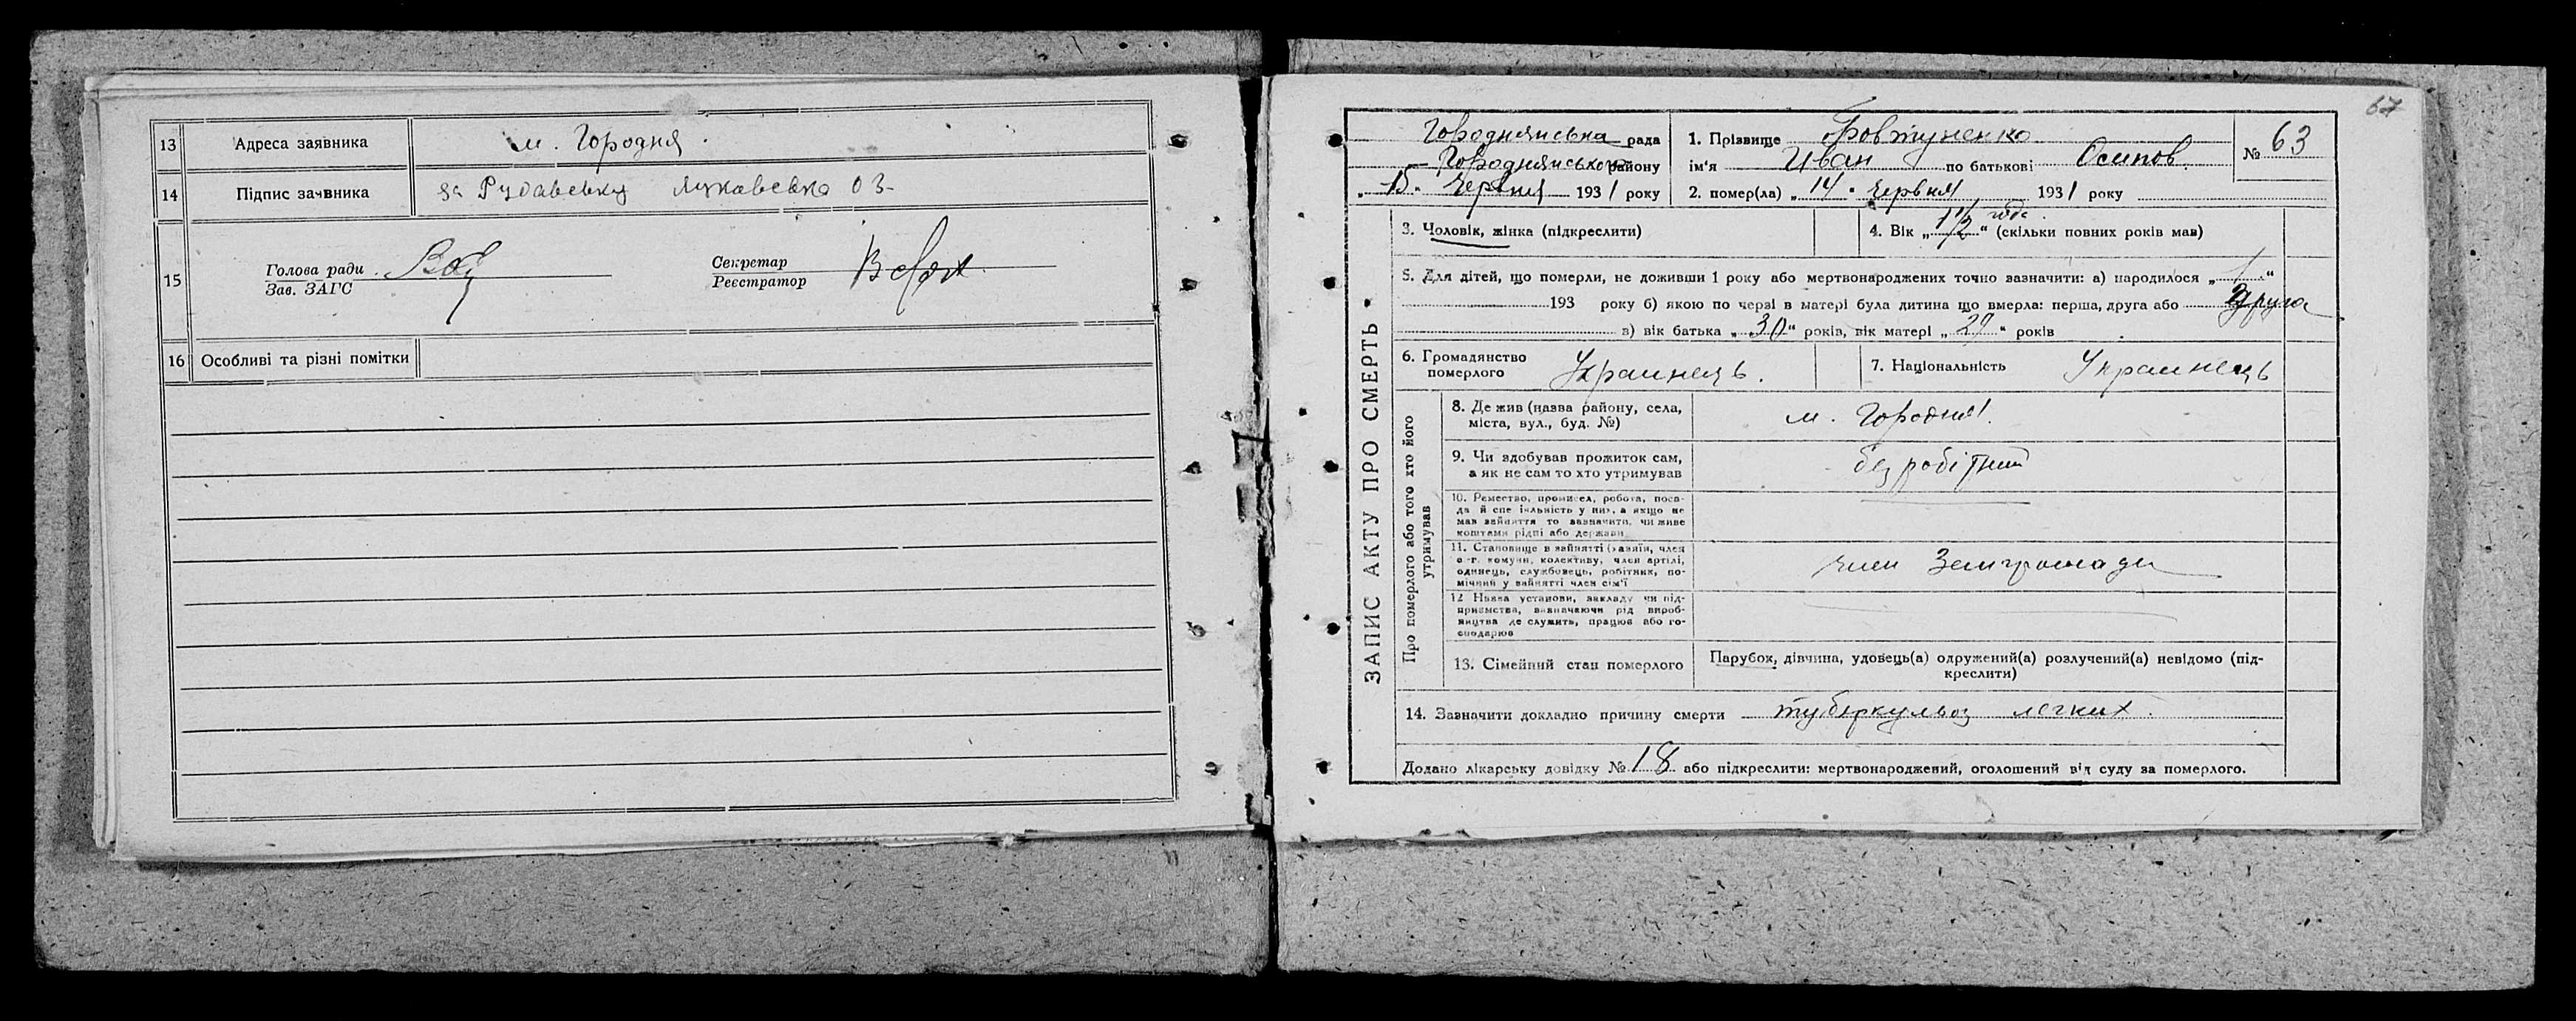 13 Адреса заявника м. Городня.
14 Підпис заявника за Рудавську Лукавська ОЗ-
15 Голова ради
Зав. ЗАГС
Секретар
Реєстратор
16 Особливі та різні помітки
67
Городнянська рада
Городнянського району
„15" червня 1931 року
1. Прізвище Бовтуненко
ім'я Иван по батькові Осипов.
2. помер(ла) „14" червня 1931 року
№ 63
ЗАПИС АКТУ ПРО СМЕРТЬ
3. Чоловік, жінка (підкреслити)
4. Вік „1 1/2 года" (скільки повних років мав)
5. Для дітей, що померли, не доживши 1 року або мертвонароджених точно зазначити: а) народилося „ "
193 року б) якою по черзі в матері була дитина що вмерла: перша, друга або друга
в) вік батька „30" років, вік матері „29" років
6. Громадянство
померлого Украинець.
7. Національність Украинець
Про померлого або того хто його
утримував
8. Де жив (назва району, села,
міста, вул., буд. №) м. Городня.
9. Чи здобував прожиток сам,
а як не сам то хто утримував безробітний
10. Ремество, промисел, робота, поса-
да й спеціяльність у них, а якщо не
мав зайняття то зазначити, чи живе
коштами рідні або держави
11. Становище в зайнятті (хазяїн, член
с.-г. комуни, колективу, член артілі,
одинець, службовець, робітник, по-
мічний у зайнятті член сім'ї
член Земгромади
12 Назва установи, закладу чи під-
приємства, визначаючи рід вироб-
ництва де служить, працює або го-
сподарює
13. Сімейний стан померлого Парубок, дівчина, удовець(а) одружений(а) розлучений(а) невідомо (під-
креслити)
14. Зазначити докладно причину смерти туберкульоз легких.
Додано лікарську довідку № 18 або підкреслити: мертвонароджений, оголошений від суду за померлого.